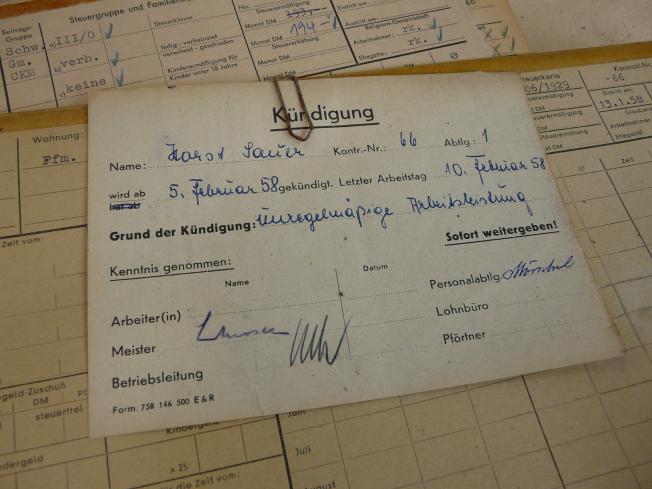 Steuergruppe und Familienstand
Beitrags-
Gruppe
Steuerklasse
Schw.
Gm.
CKM
a) III/0
b) verh.
c) keine
ledig - verheiratet
verwitwet - geschieden
Kinderermäßigung für
Kinder unter 18 Jahre
No.
Steuerermäßigung
Monat DM 194
Steuererhöhung
Monat DM
Monat DM
Eintritt am:
46
Austritt am:
Religions-Gemeinschaft
Arbeitnehmer: rk.
Ehegatte: rk.
0
Steuerkarte
06/1929
Kontroll-Nr.
-66
Eintritt am:
13.1.58
Steuererhöhung
Arbeitnehmer
Ehegatte
Zeit
Wohnung:
Ffm.
Zeit vom:
Kündigung
Name: Horst Sauer Kontr.-Nr.: 66 Abtlg.: 1
wird ab 5. Februar 58 gekündigt. Letzter Arbeitstag 10. Februar 58
hat ab
Grund der Kündigung: Unregelmäßige Arbeitsleistung
Sofort weitergeben!
Kenntnis genommen:
Name Datum
Personalabtlg.
Arbeiter(in)
Lohnbüro
Meister
Pförtner
Betriebsleitung
Form. 758 146 500 E & R
geld-Zuschuß
DM Pf
steuerfrei
Kindergeld
ndergeld
x 25
die Zeit vom:
Juni
Juli
August